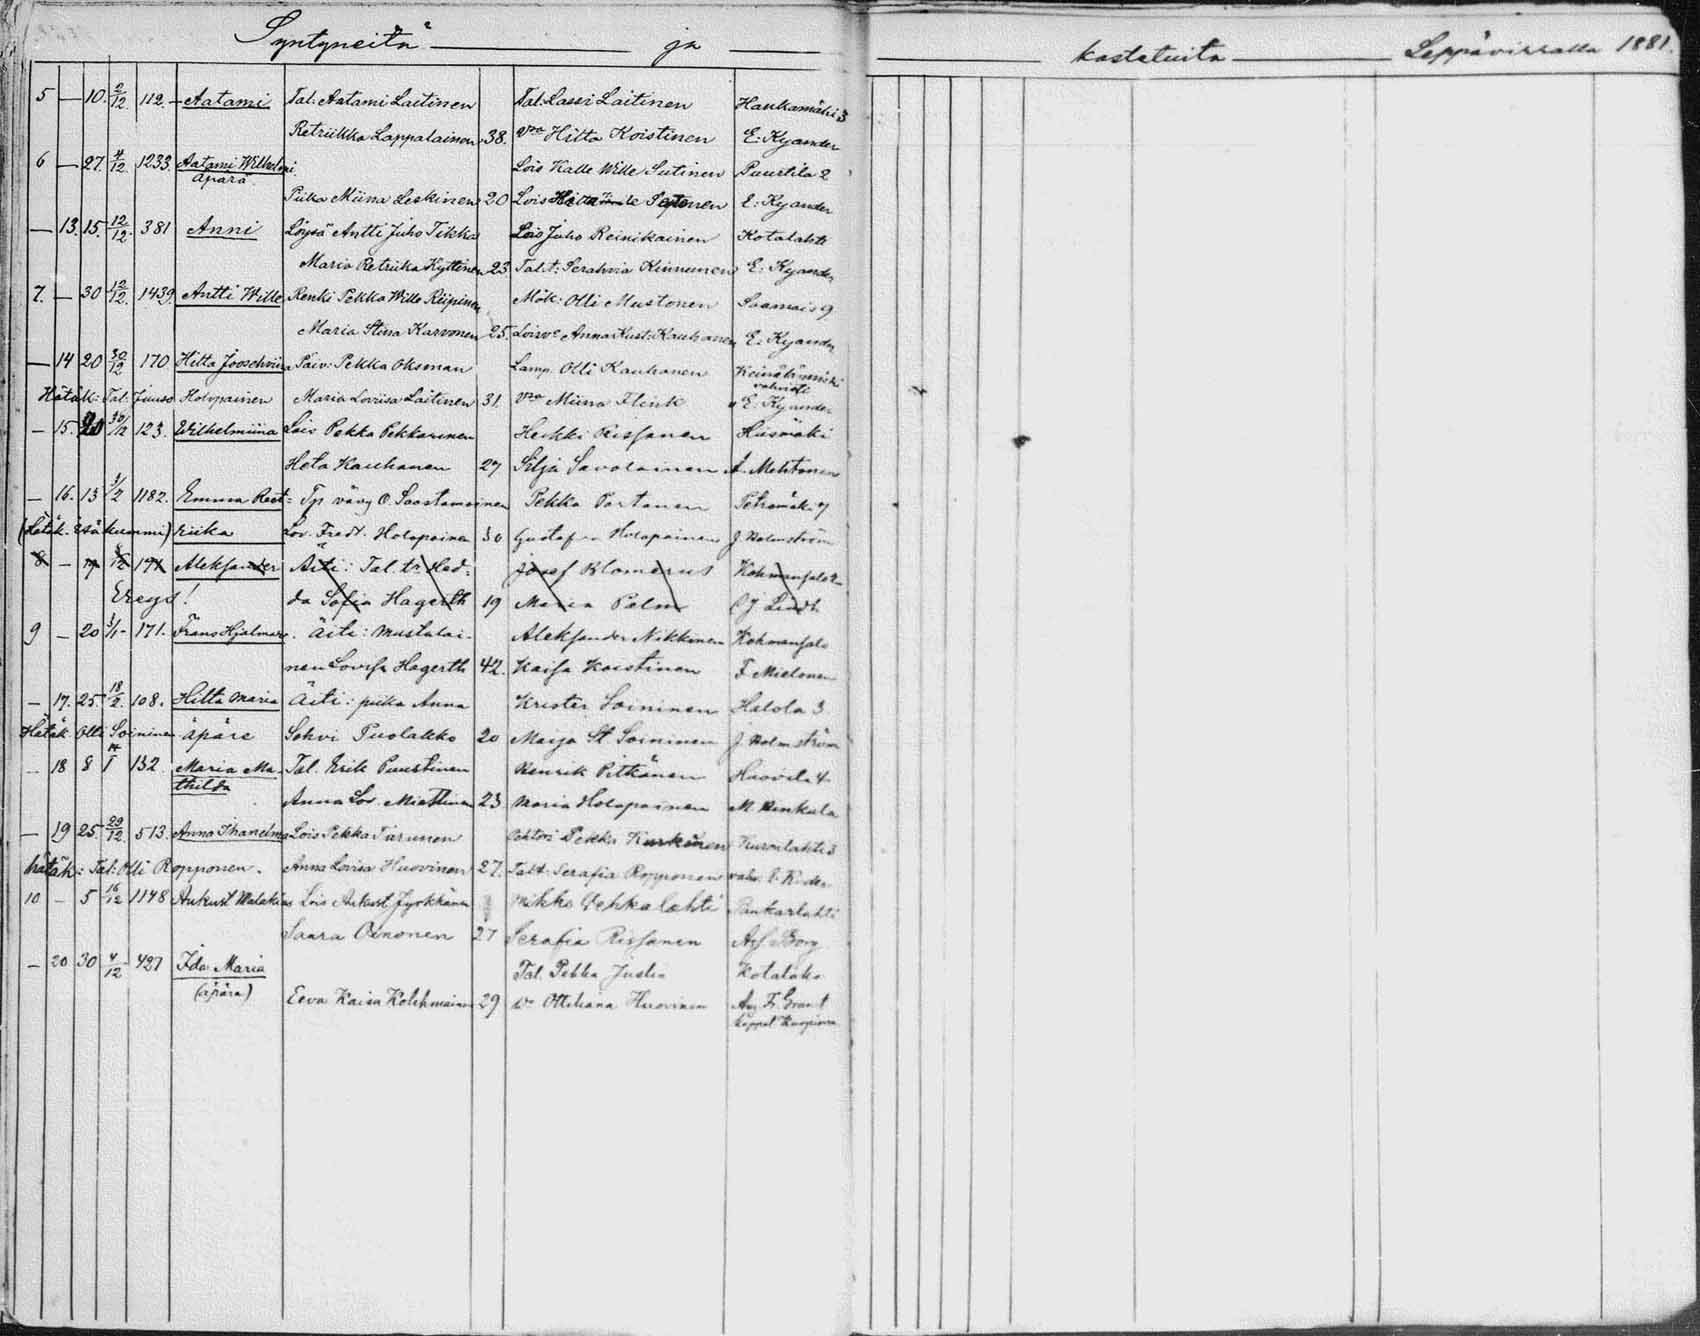 Syntyneitä — ja — kastetuita — Leppävirralla 1881.
5 — 10. 2/12 112. Aatami Tal: Aatami Laitinen Tal: Lassi Laitinen Haukamäki 3
Retriikka Lappalainen 38. Vmo Hilta Koistinen E: Kyander
6 — 27. 4/12 1233. Aatami Wilhelmi Lois Kalle Wille Sutinen Puurtila 2
äpärä Piika Miina Leskinen 20 Lois E: Kyander
— 13. 15. 12/12 381 Anni Löysä Antti Juho Tikka Lois Juho Reinikainen Kotalahti
Maria Retriika Kyttinen 23. Tal.t: Serahvia Kinnunen E: Kyander
7. — 30 12/12. 1439. Antti Wille Renki Pekka Wille Riipinen Mök: Olli Mustonen Saamais 9
Maria Stina Karvonen 25. Anna Kust: Kauhanen E: Kyander
— 14 20 30/12 170 Hilta Jooschviina Päiv: Pekka Oksman Lamp. Olli Kauhanen
Hätäk: Tal: Juuso Holopainen Maria Loviisa Laitinen 31. Vmo Miina Flink E. Kyander
— 15. 20 30/12 123. Wilhelmiina Lois Pekka Pekkarinen Heikki Rissanen Hiismäki
Heta Kauhanen 27 Silja Savolainen A. Mehtonen
— 16. 13 1182. Emma Reet= Tp vävy O. Saastamoinen Pekka Partanen Petromäki 7
(Hätäk. Isä kummi) riika Lov. Fredr. Holopainen 30 Gustafva Holopainen J. Holmström
8 — 171 Aleksander Äiti: Tal. tr Hed= Josef Blomerus Kohmansalo 2
Ereys! da Sofia Hagerth 19 Maria Palm C J Lindh
9 — 20 3/1 - 171. Frans Hjalmar. Äiti: Mustalai- Aleksander Nikkinen Kohmansalo
nen Lovisa Hagerth 42. Kaisa Koistinen F Mielonen
— 17. 25. 18/2. 108. Hilta Maria Äiti: piika Anna Krister Soininen Halola 3
Hätäk Olli Soininen äpäre Sohvi Puolakko 20 Maija St Soininen J Holmström
— 18 8 132 Maria Ma- Tal. Erik Puustinen Henrik Pitkänen Huovila 4
thilda Anna Lov. Miettinen 23 Maria Holopainen M. Henkula
— 19 25 29/12 513. Anna Lois Pekka Turunen Pekka Kurkinen 3
hätäk: Tal: Olli Ropponen. Anna Lovisa Huovinen 27. Talt: Serafia Ropponen
10 — 5 16/12 1148 Aukust Malakias Lois Aukust Jyrkkänen Mikko Vehkalahti Paukarlahti
Saara Oinonen 27 Serafia Rissanen Borg
— 20 30 4/12 427 Ida Maria Tal. Pekka Kotalaks
(äpärä) Eeva Kaisa Kolehmainen 29 Vo Ottiliana Huovinen Aug Fr. Granit
kappal Kuopiossa